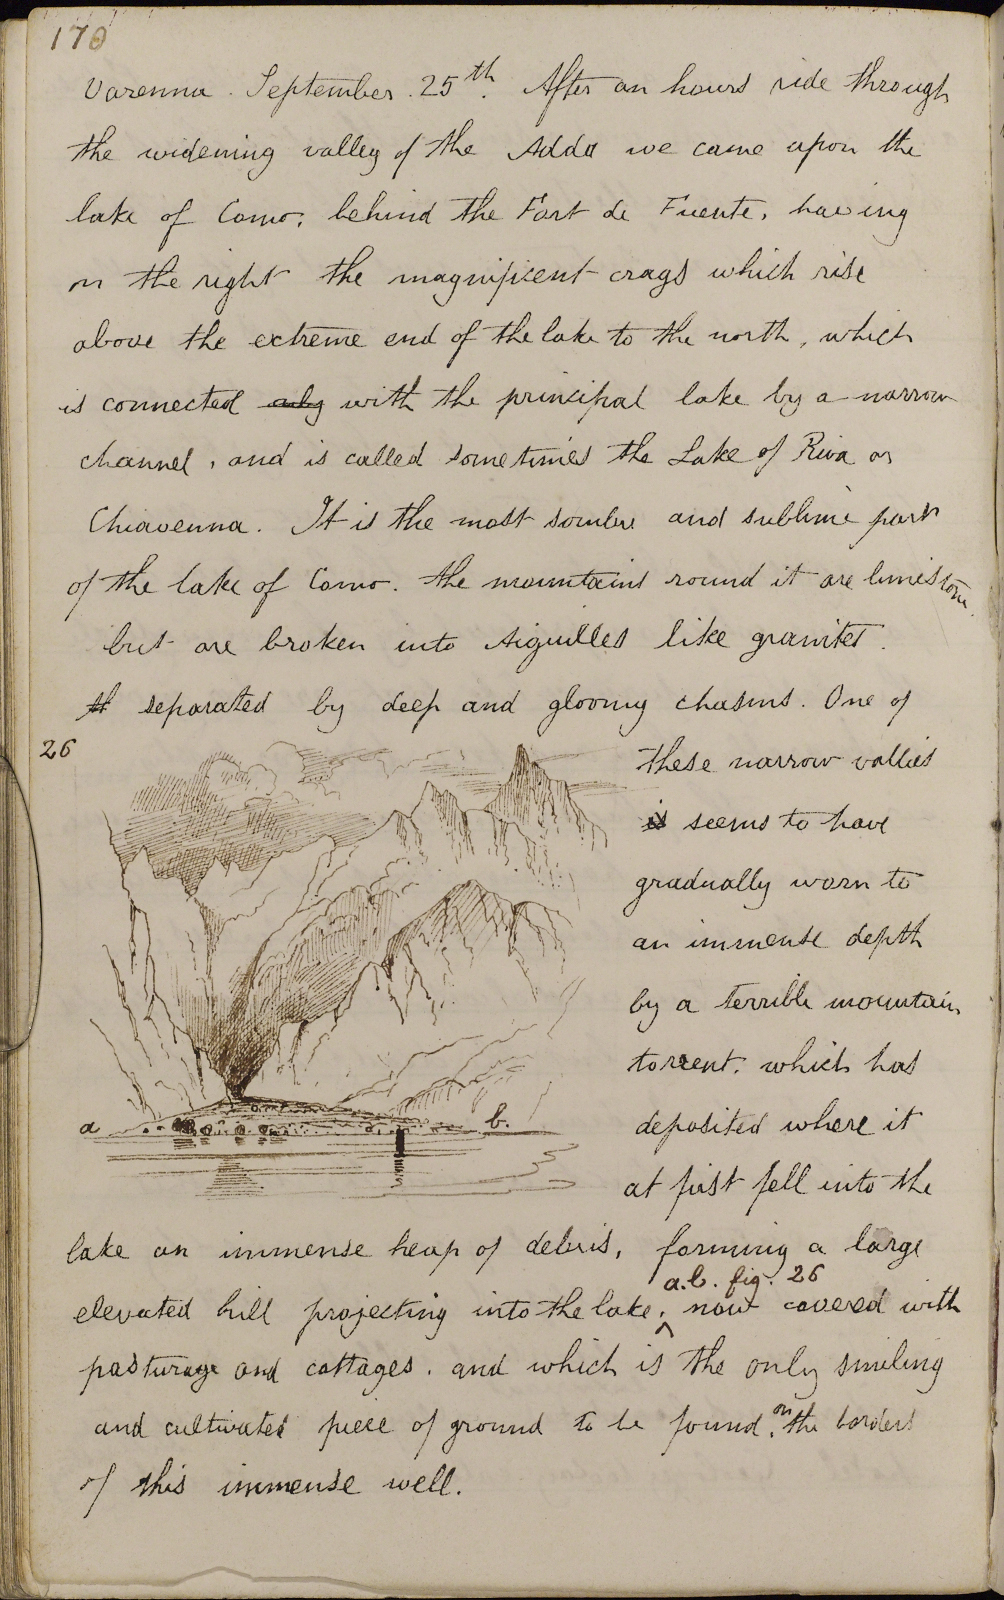 170
Varenna. September. 25th. After an hours ride through
the widening valley of the Adda we came upon the
lake of Como; behind the Fort de Fuente, having
on the right the magnificent crags which rise
above the extreme end of the lake to the north, which
is connected only with the principal lake by a narrow
channel, and is called sometimes the Lake of Riva or
Chiavenna. It is the most sombre and sublime part
of the lake of Como. the mountains round it are limestone.
but are broken into Aiguilles like granites.
th separated by deep and gloomy chasms. One of
26
these narrow vallies
is seems to have
gradually worn to
an immense depth
by a terrible mountain
torrent. which has
deposited where it
at first fell into the
a
b.
lake an immense heap of debris, forming a large
a.b. fig. 26
elevated hill projecting into the lake, ^ now covered with
pasturage and cottages. and which is the only smiling
on
and cultivated piece of ground to be found, the borders
of this immense well.